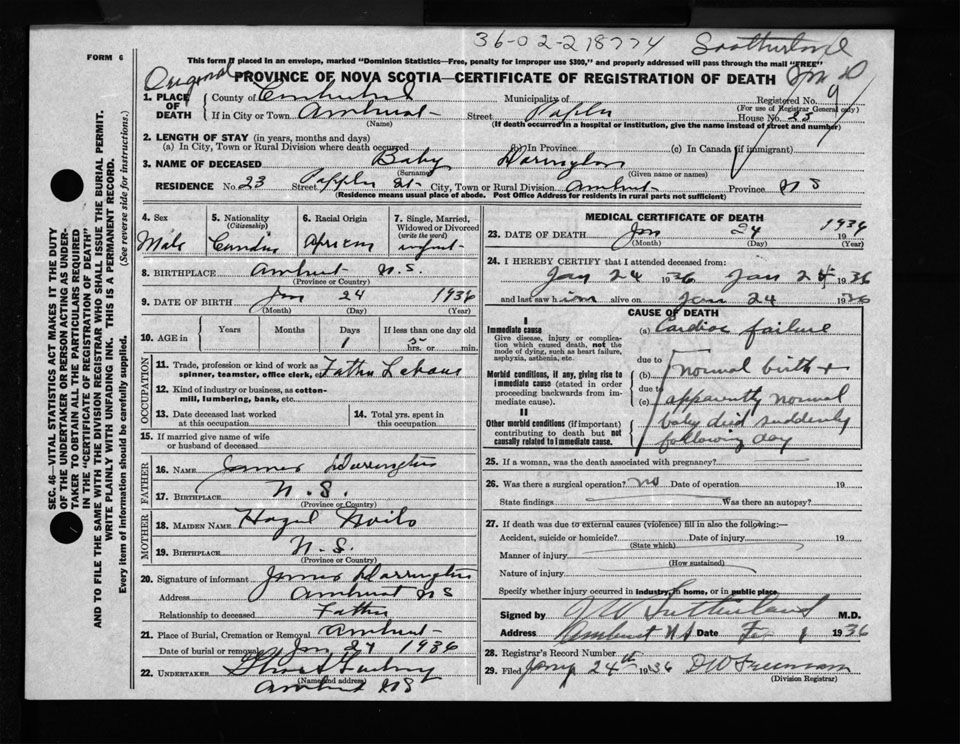 36-02-218774 Sootherland
FORM 6
This form if placed in an envelope, marked "Dominion Statistics—Free, penalty for improper use $300," and properly addressed will pass through the mail "FREE"
Original PROVINCE OF NOVA SCOTIA—CERTIFICATE OF REGISTRATION OF DEATH
1. PLACE OF DEATH County of Municipality of Registered No. 9
(For use of Registrar General only)
If in City or Town Amherst Street Poplar House No. 23
(Name) (If death occurred in a hospital or institution, give the name instead of street and number)
2. LENGTH OF STAY (in years, months and days)
(a) In City, Town or Rural Division where death occurred (b) In Province (c) In Canada (if immigrant)
3. NAME OF DECEASED Baby Darington
(Surname) (Given name or names)
RESIDENCE No. 23 Street Poplar St. City, Town or Rural Division Amherst Province N S
(Residence means usual place of abode. Post Office Address for residents in rural parts not sufficient)
4. Sex 5. Nationality (Citizenship) 6. Racial Origin 7. Single, Married, Widowed or Divorced (write the word)
Male African infant
8. BIRTHPLACE Amherst N.S.
(Province or Country)
9. DATE OF BIRTH Jan 24 1936
(Month) (Day) (Year)
10. AGE in Years Months Days If less than one day old
1 5 hrs. or min.
OCCUPATION
11. Trade, profession or kind of work as spinner, teamster, office clerk, etc. Father
12. Kind of industry or business, as cotton-mill, lumbering, bank, etc.
13. Date deceased last worked at this occupation 14. Total yrs. spent in this occupation
15. If married give name of wife or husband of deceased
FATHER
16. NAME James Darrington
17. BIRTHPLACE N.S.
(Province or Country)
MOTHER
18. MAIDEN NAME Hazel
19. BIRTHPLACE N.S.
(Province or Country)
20. Signature of informant James Darrington
Address Amherst NS
Relationship to deceased Father
21. Place of Burial, Cremation or Removal Amherst
Date of burial or removal Jan 24 1936
22. UNDERTAKER
(Name and address)
Amherst NS
MEDICAL CERTIFICATE OF DEATH
23. DATE OF DEATH Jan 24 1936
(Month) (Day) (Year)
24. I HEREBY CERTIFY that I attended deceased from:
Jan 24 1936 Jan 24 1936
and last saw him alive on Jan 24 1936
CAUSE OF DEATH
I
Immediate cause
Give disease, injury or complication which caused death, not the mode of dying, such as heart failure, asphyxia, asthenia, etc.
(a) Cardiac failure
due to
Morbid conditions, if any, giving rise to immediate cause (stated in order proceeding backwards from immediate cause).
(b) normal birth +
due to
(c) apparently normal
II
Other morbid conditions (if important) contributing to death but not causally related to immediate cause.
baby died suddenly
following day
25. If a woman, was the death associated with pregnancy?
26. Was there a surgical operation? no Date of operation 19
State findings Was there an autopsy?
27. If death was due to external causes (violence) fill in also the following:—
Accident, suicide or homicide? Date of injury 19
(State which)
Manner of injury
(How sustained)
Nature of injury
Specify whether injury occurred in industry, in home, or in public place.
Signed by J W Sutherland M.D.
Address Amherst N S Date Feb 1 1936
28. Registrar's Record Number
29. Filed Jany 24th 1936 D W Freeman
(Division Registrar)
SEC. 46—VITAL STATISTICS ACT MAKES IT THE DUTY
OF THE UNDERTAKER OR PERSON ACTING AS UNDER-
TAKER TO OBTAIN ALL THE PARTICULARS REQUIRED
IN THE "CERTIFICATE OF REGISTRATION OF DEATH"
AND TO FILE THE SAME WITH THE DIVISION REGISTRAR WHO SHALL ISSUE THE BURIAL PERMIT.
WRITE PLAINLY WITH UNFADING INK. THIS IS A PERMANENT RECORD.
Every item of information should be carefully supplied. (See reverse side for instructions.)